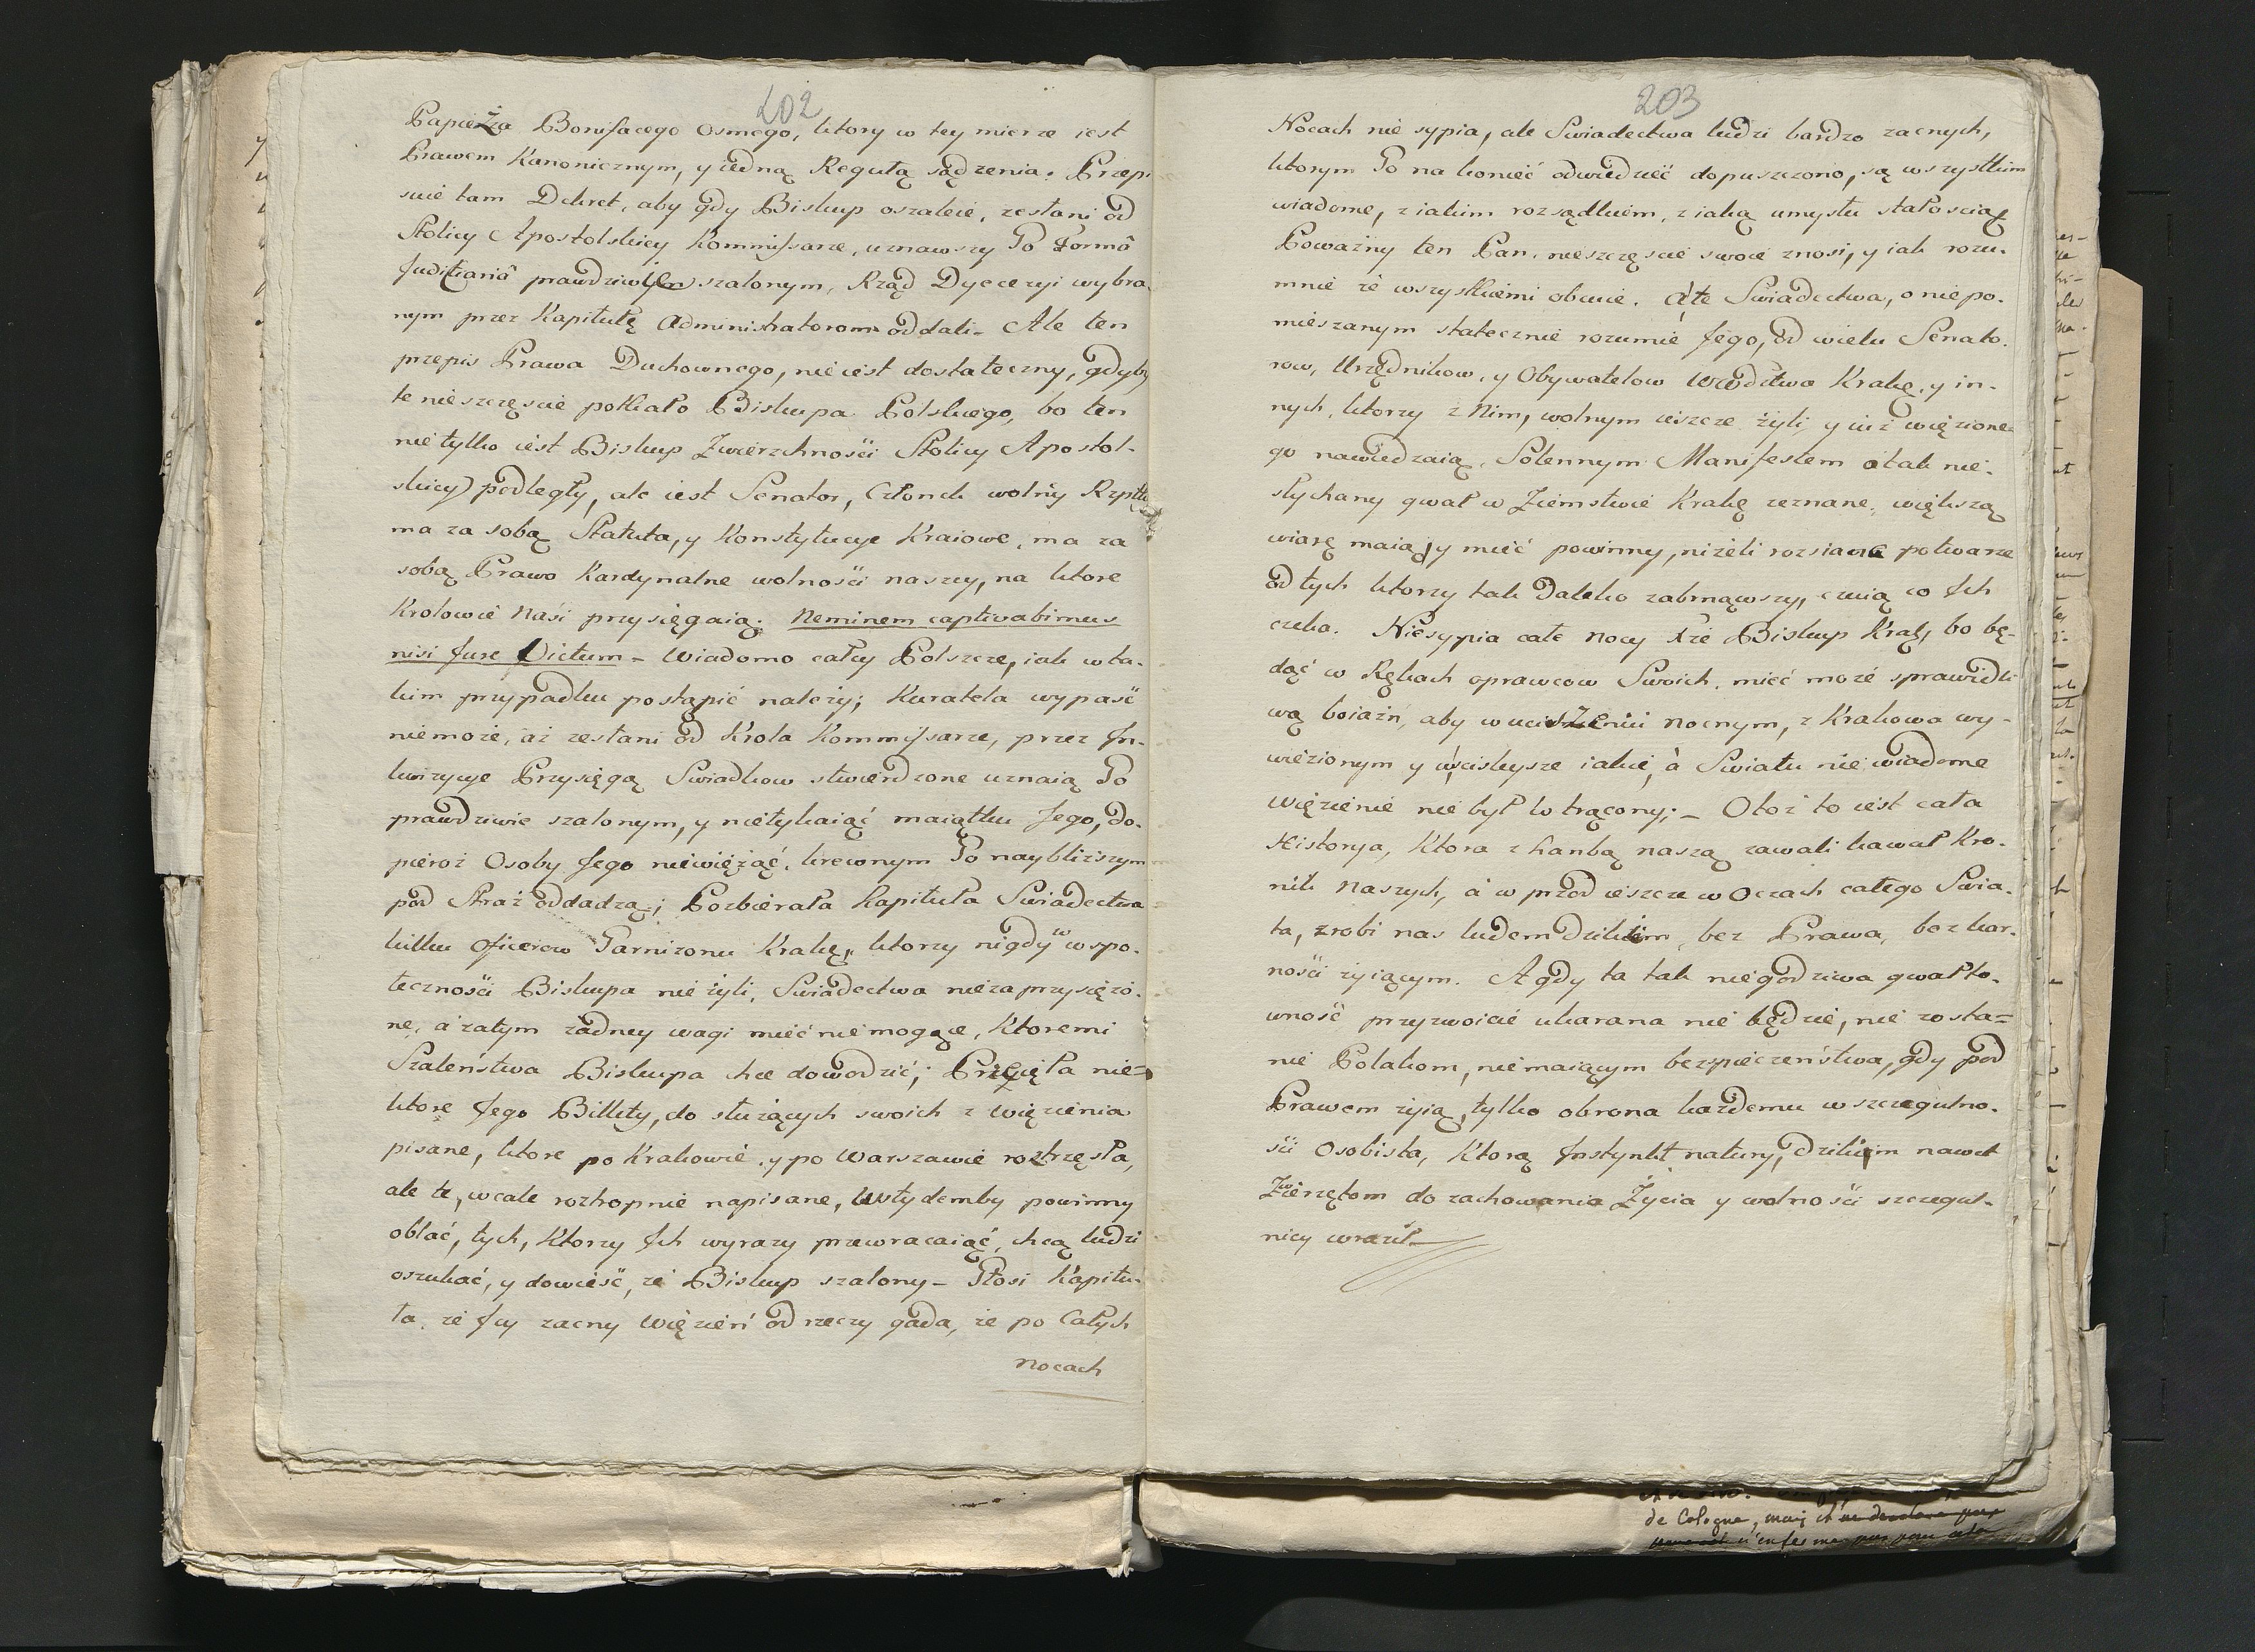 202
Papieża Bonifacego osmego, ktory w tey mierze iest
Prawem Kanonicznym, y iedną Regułą sądzenia. Przepi
suie tam Dekret, aby gdy Biskup oszaleie, zesłani od
Stolicy Apostolskiey Kommissarze, uznawszy Go Formâ
Juditiariâ prawdziwym szalonym, Rząd Dyecezyi wybra-
nym przez Kapitułę Administratorom oddali - Ale ten
przepis Prawa Duchownego, nie iest dostateczny, gdyby
te nieszczęscie potkało Biskupa Polskiego, bo ten
nie tylko iest Biskup Zwierzchności Stolicy Apostol-
skiey podległy, ale iest Senator, Członek wolny Rzptey
ma za sobą Statuta, y Konstytucye Kraiowe, ma za
sobą Prawo Kardynalne wolności naszey, na ktore
Krolowie Naśi przysięgaią. Neminem captivabimus
nisi Jure Victum - Wiadomo całey Polszcze, iak w ta-
kim przypadku postąpić należy; Kuratela wypaść
nie może, aż zesłani od Krola Kommissarze, przez In-
kwizycye Przysięgą Swiadkow stwierdzone uznaią Go
prawdziwie szalonym, y nietykaiąć maiątku Jego, do-
pieroż Osoby Jego niewiężąć, krewnym Go naybliższym
pod Straż oddadzą; Pozbierała Kapituła Swiadectwa
kilku Oficerow Garnizonu Krakę, ktorzy nigdy w spo-
łeczności Biskupa nie żyli, Swiadectwa niezaprzysiężo-
ne, a zatym żadney wagi mieć nie mogące, Ktoremi
Szaleństwa Biskupa chce dowodzić; Przeięła nie-
ktore Jego Billety, do służących swoich z Więzienia
pisane, ktore po Krakowie y po Warszawie roztrzęsła,
ale te, wcale roztropnie napisane, Wstydemby powinny
oblać, tych, Ktorzy Ich wyrazy przewracaiąć, chcą ludzi
oszukać, y dowieść, że Biskup szalony - Głosi Kapitu-
ła, że Jey zacny Więzień od rzeczy gada, że po Całych
nocach
203
Nocach nie sypia, ale Swiadectwa ludzi bardzo zacnych,
ktorym Go na koniéć odwiedzieć dopuszczono, są wszystkim
wiadome, z iakim rozsądkiem, z iaką umysłu stałoscią
Poważny ten Pan, nieszczęscie swoie znosi, y iak rozu-
mnie ze wszystkiemi obcuie. á te Swiadectwa, o niepo-
mieszanym statecznie rozumie Jego, od wielu Senato-
row, Urzędnikow, y Obywatelow Wwodztwa Krakę, y in-
nych, ktorzy z Nim, wolnym ieszcze żyli, y iuż więzione-
go nawiedzaią, Solennym Manifestem o tak nie-
słychany gwałt w Ziemstwie Krakę zeznane, większą
wiarę maią, y mieć powinny, niżeli rozsiane potwarze
od tych ktorzy tak daleko zabrnąwszy, czuią co Ich
czeka. Niesypia całe nocy Xże Biskup Krak, bo bę-
dąć w Rękach oprawcow Swoich, mieć może sprawiedli
wą boiaźń, aby w uciszeniu nocnym, z Krakowa wy-
wiezionym y w scisleysze iakie, á Swiatu nie wiadome
Więzienie nie był wtrącony; - Otoż to iest cała
Historya, Ktora z hanbą naszą zawali kawał Kro-
nik Naszych, a w przod ieszcze w Oczach całego Swia-
ta, zrobi nas ludem dzikiem, bez Prawa, bez kar-
ności żyiącym. A gdy ta tak niegodziwa gwałto-
wność przyzwoicie ukarana nie będzie, nie zosta-
nie Polakom, nie maiącym bezpieczeństwa, gdy pod
Prawem żyią, tylko obrona każdemu w szczegulno-
ści Osobista, Ktorą Instynkt natury, dzikim nawet
Zwierzętom do zachowania Życia y wolności szczegul-
niey wraził
de Cologne, mais